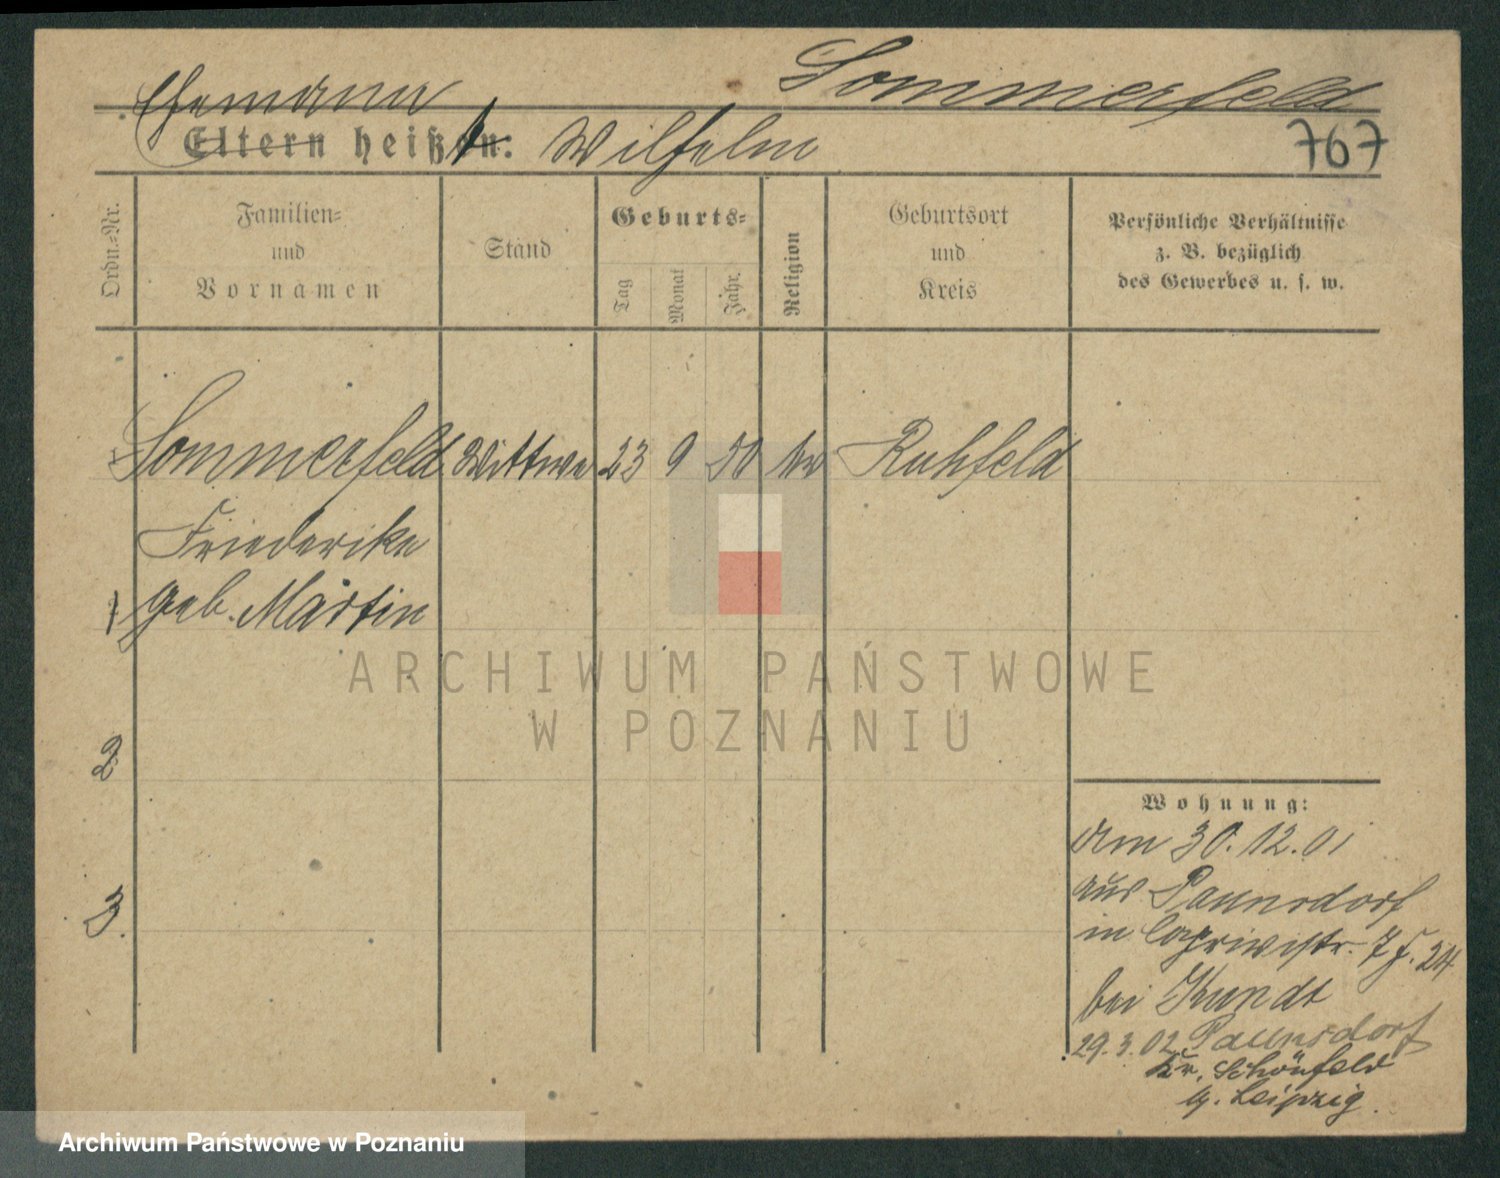 Sommerfeld
Ehemann
Eltern heißen: Wilhelm
767
Ordn.=Nr.
Familien=
und
Vornamen
Stand
Geburts=
Tag
Monat
Jahr.
Religion
Geburtsort
und
Kreis
Persönliche Verhältnisse
z. B. bezüglich
des Gewerbes u. s. w.
Sommerfeld Wittwe 23 9 50 Ruhfeld
Friederike
1 geb. Martin
2
3.
Wohnung:
Am 30.12.01
aus Paunsdorf
in Caprivistr. 7 24
bei Kundt
29.3.02 Paunsdorf
Kr. Schönfeld
b. Leipzig.
ARCHIWUM PAŃSTWOWE
W POZNANIU
Archiwum Państwowe w Poznaniu